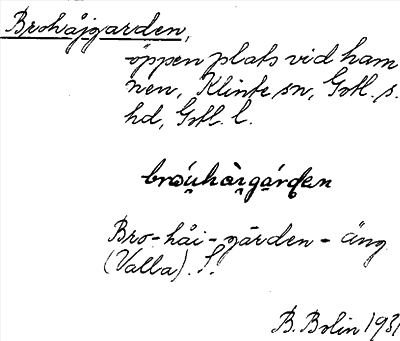 Brohåjgarden,
öppen plats vid ham
nen, Klinte sn, Gotl. s.
hd, Gotl. l.
Bro-håi-gården-äng
(Valla). f.
B. Bolin 1931